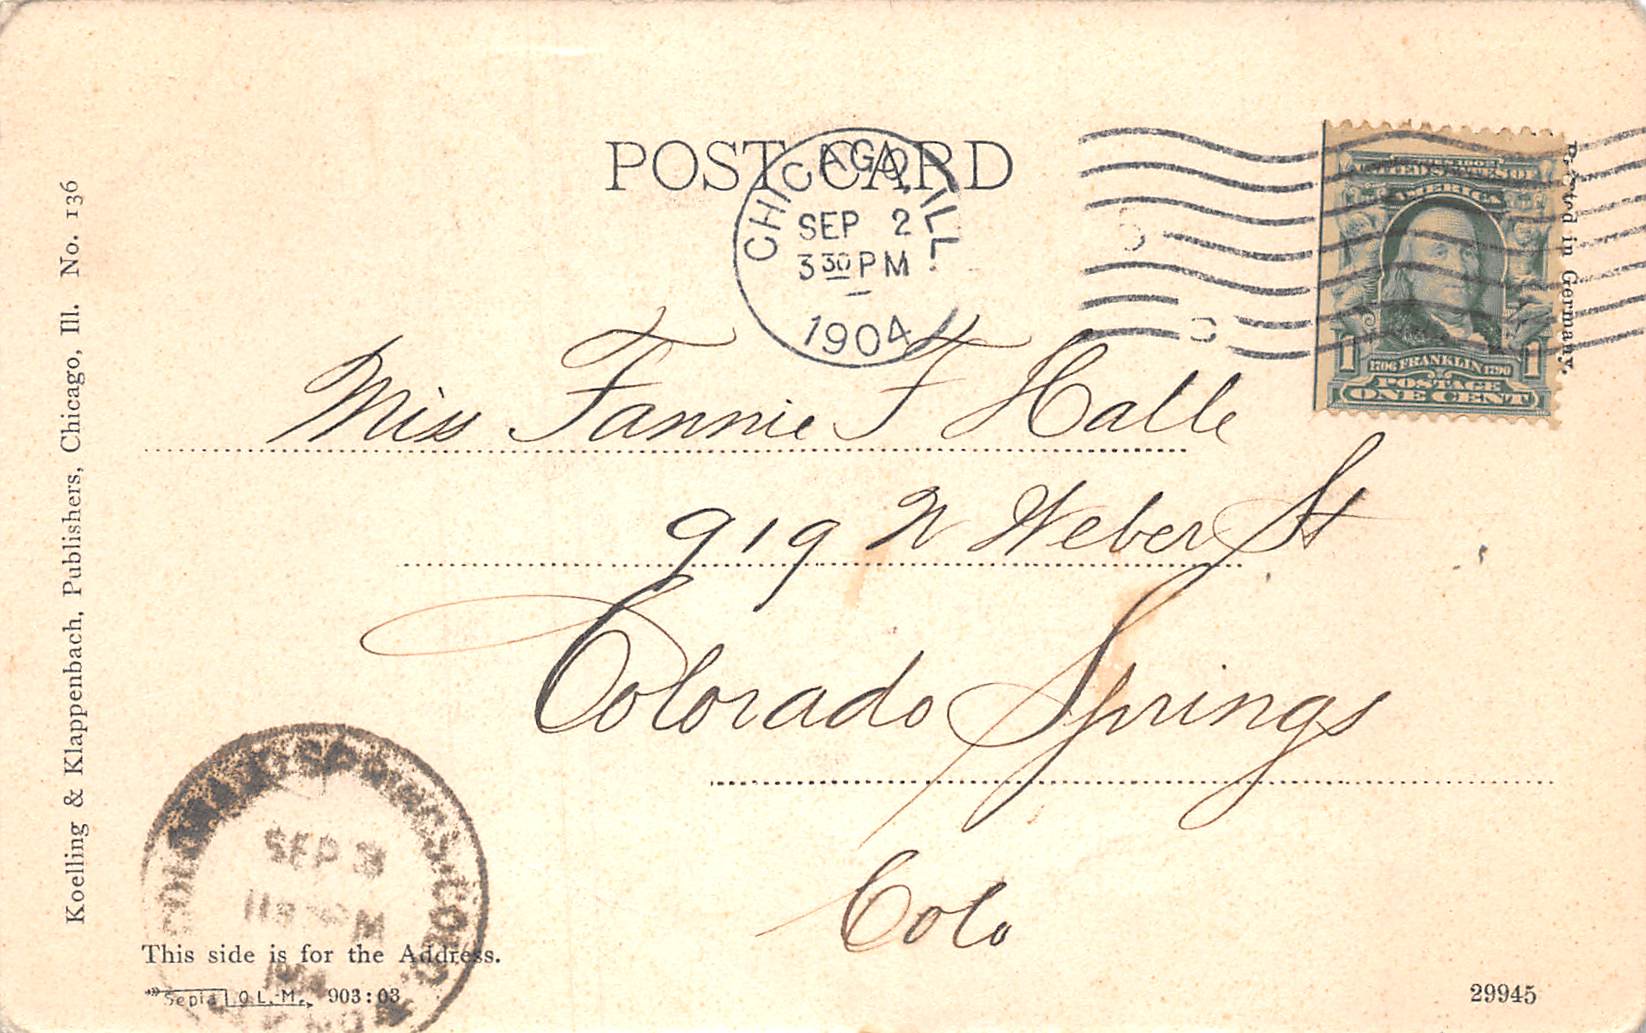 POST CARD
CHICAGO, ILL.
SEP 2
3 30 PM
1904
UNITED STATES OF
AMERICA
1706 FRANKLIN 1790
POSTAGE
1 1
ONE CENT
Printed in Germany.
Miss Fannie F Halle
919 N Weber St
Colorado Springs
Colo
Koelling & Klappenbach, Publishers, Chicago, Ill. No. 136
COLORADO SPRINGS, COLO.
SEP 3
This side is for the Address.
Sepia I.O.L.-M. 903:03
29945